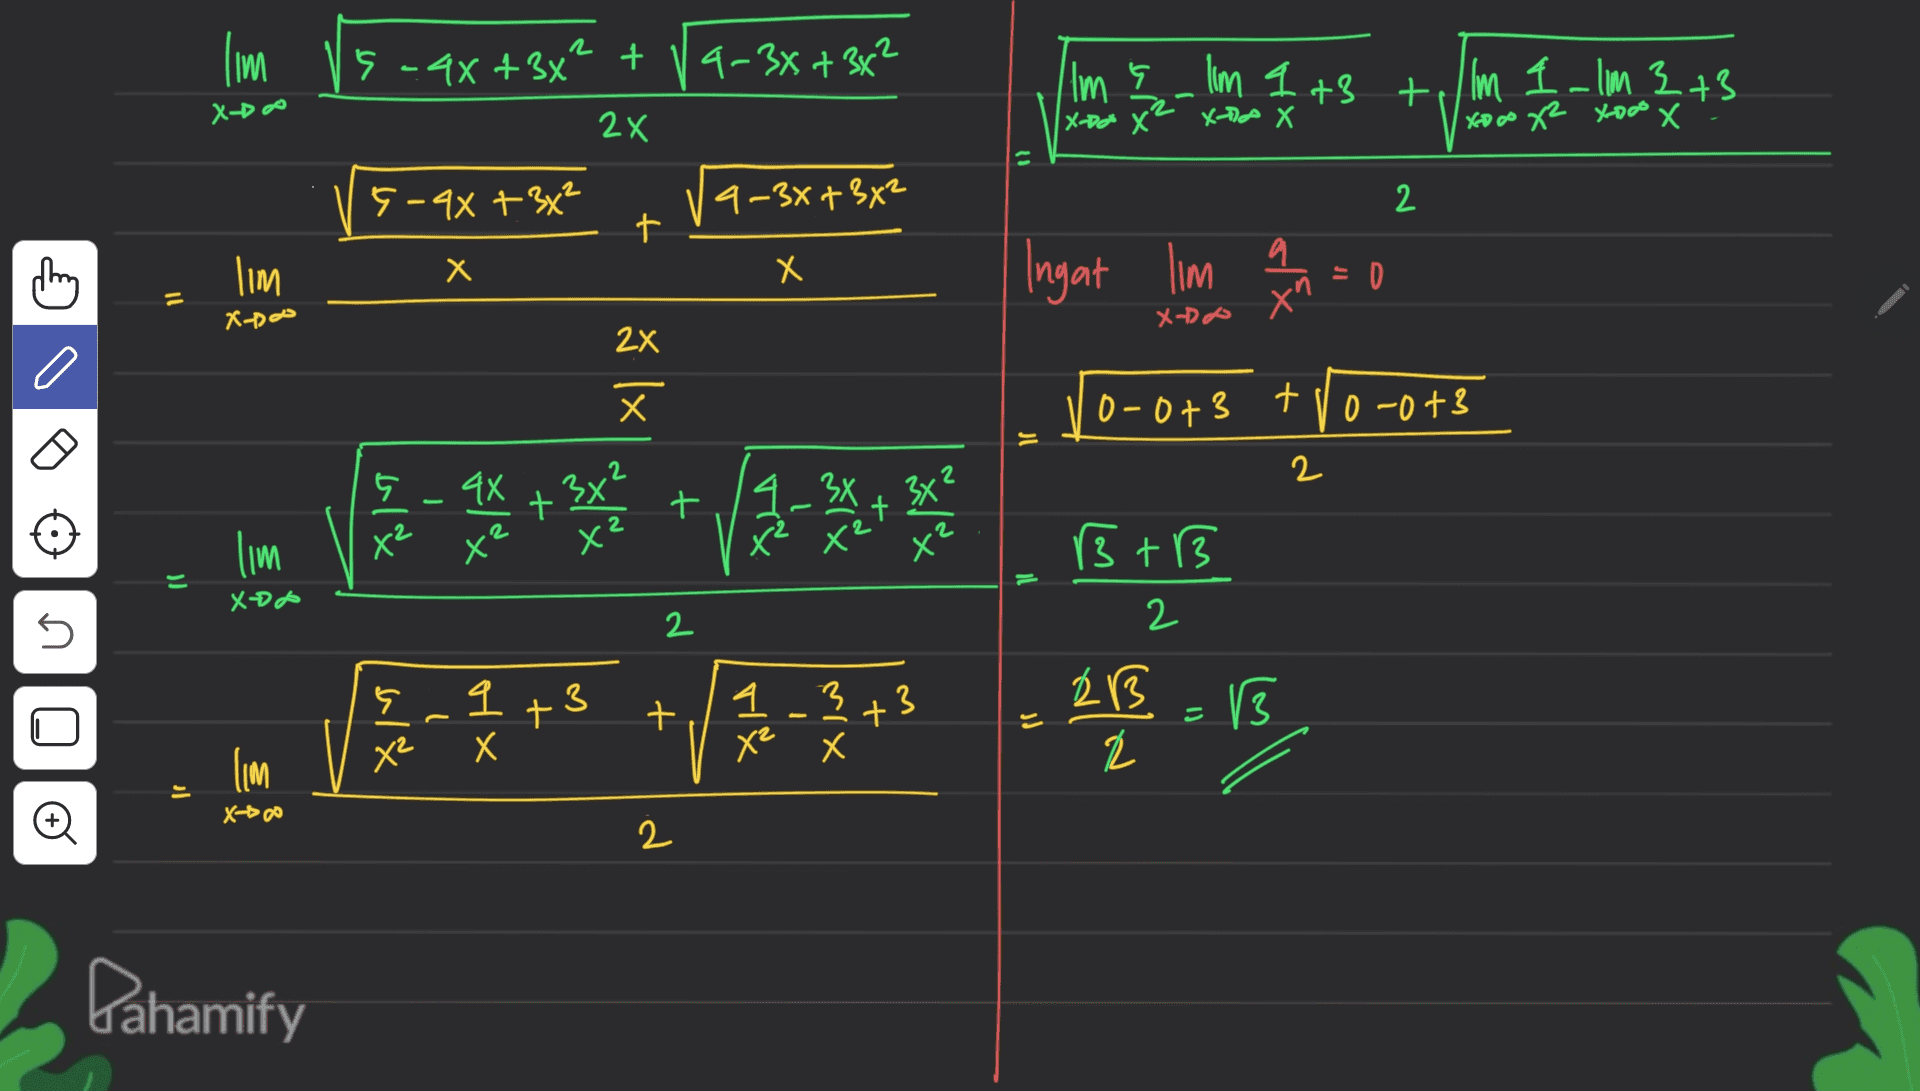 lim x→∞ (√(5 - 4x + 3x²) + √(4 - 3x + 3x²)) / 2x
= lim x→∞ (√(5 - 4x + 3x²) / x + √(4 - 3x + 3x²) / x) / (2x / x)
= lim x→∞ (√(5/x² - 4x/x² + 3x²/x²) + √(4/x² - 3x/x² + 3x²/x²)) / 2
= lim x→∞ (√(5/x² - 4/x + 3) + √(4/x² - 3/x + 3)) / 2
= (√(lim x→∞ 5/x² - lim x→∞ 4/x + 3) + √(lim x→∞ 4/x² - lim x→∞ 3/x + 3)) / 2
Ingat lim x→∞ a/xⁿ = 0
= (√(0 - 0 + 3) + √(0 - 0 + 3)) / 2
= (√3 + √3) / 2
= 2√3 / 2 = √3
Pahamify